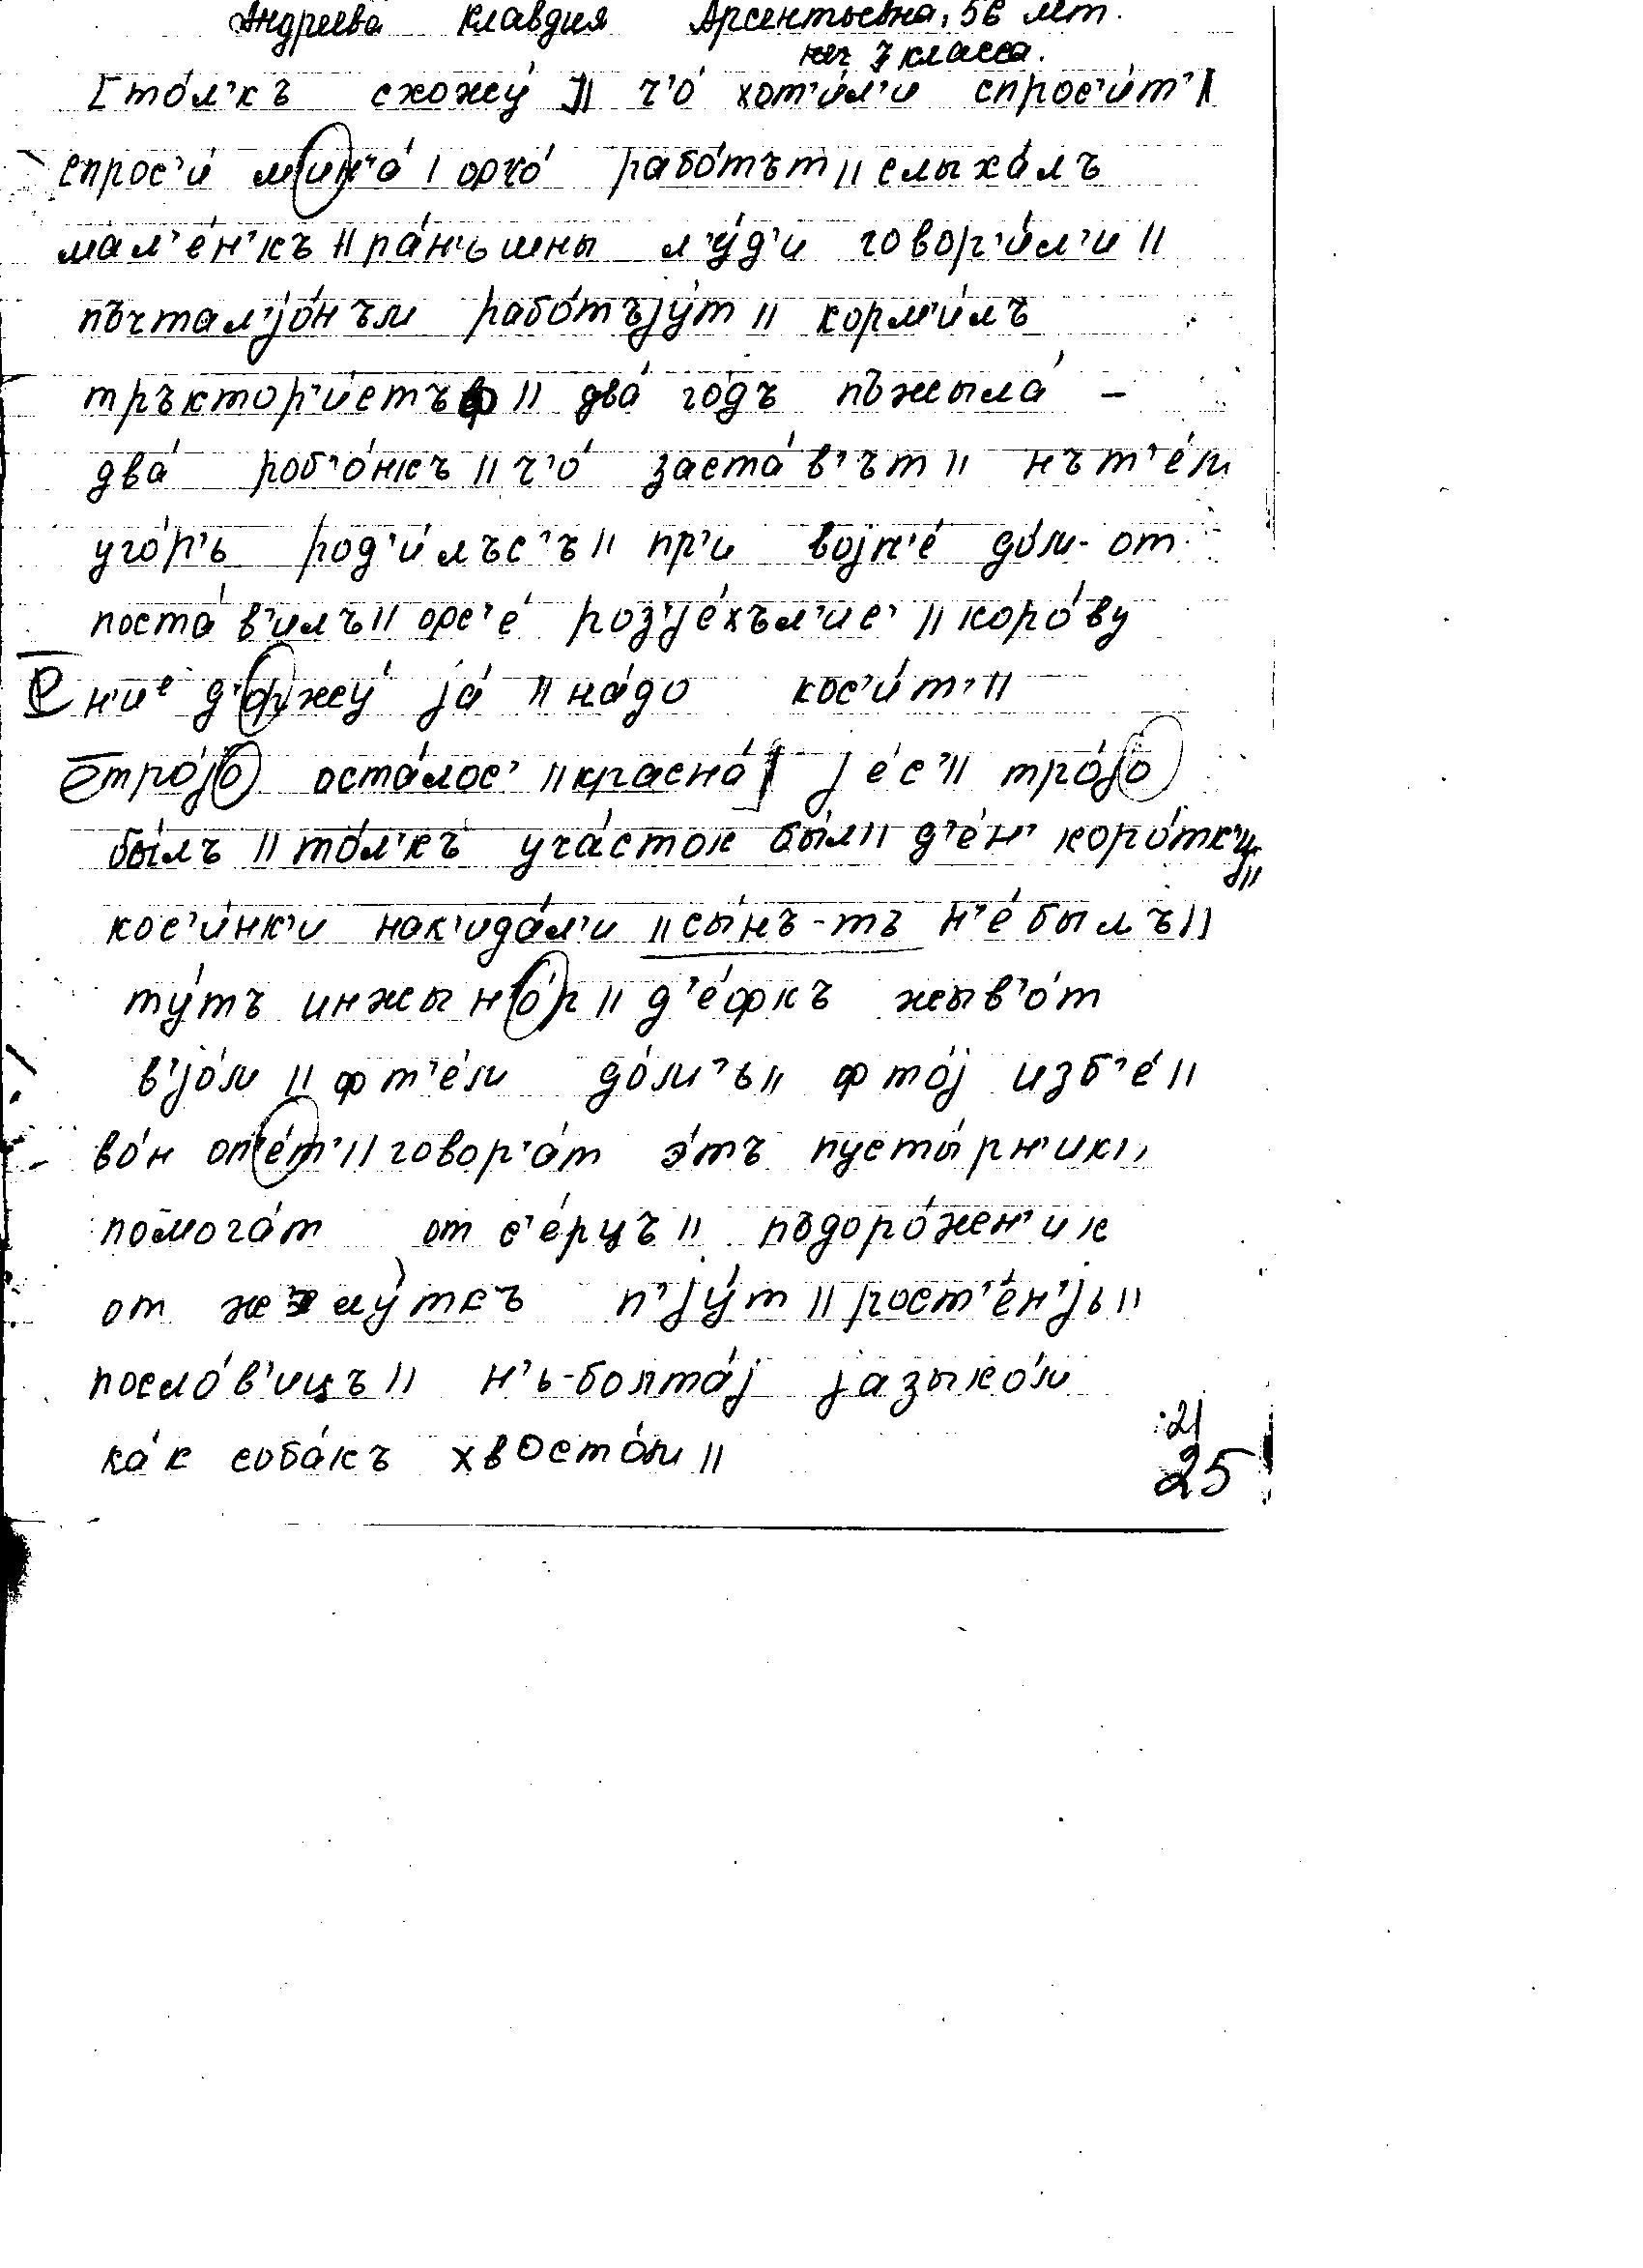 Андреева Клавдия Арсентьевна, 56 лет.
7 класса.
[то́л'къ схожу́]|| ч'о́ хот'и́л'и спрос'и́т'|
спрос'и́ мин'а́ | орхо́ рабо́тът || слыха́лъ
мал'е́н'къ || ра́н'ьшны л'у́д'и говор'и́л'и ||
пъчтал'jо́нъм рабо́тъjу́т || корм'и́лъ
тръктор'и́стъф || два́ го́дъ пъжыла́ –
два́ роб'о́нкъ || ч'о́ заста́в'ът || нъ т'е́м
уго́р'ь род'и́лъс'ъ || пр'и војн'е́ до́м-от
поста́в'илъ || фс'е́ роз'jе́хъл'ис' || коро́ву
н'ие д'оржу́ jа́ || на́до кос'и́т' ||
тро́jо оста́лос' || красна́] jе́с' || тро́jо
бы́лъ || то́л'къ уча́сток бы́л || д'е́н' коро́тк'иj ||
кос'и́нк'и нак'ида́л'и || сы́нъ-тъ н'е́ былъ ||
ту́тъ инжын'о́р || д'е́фкъ жыв'о́т
в'jо́м || ф т'е́м до́м'ь || ф то́j изб'е́ ||
во́н оп'е́т' || говор'а́т э́тъ пусты́рн'ик ||
помога́т от с'е́рцъ || пъдоро́жен'ик
от жэлу́ткъ п'jу́т || рост'е́н'jь ||
посло́в'ицъ || н'ь-болта́j jазыко́м
ка́к соба́къ хвосто́м ||
:21
25